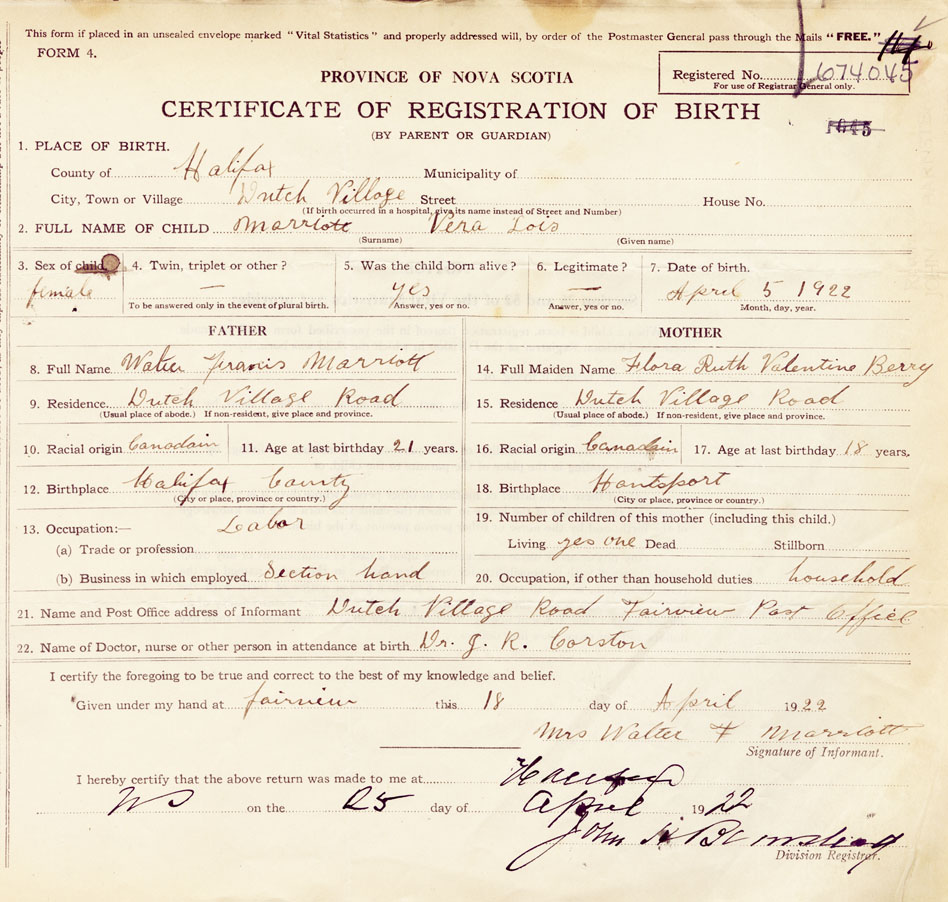 This form if placed in an unsealed envelope marked "Vital Statistics" and properly addressed will, by order of the Postmaster General pass through the Mails "FREE."
FORM 4.
PROVINCE OF NOVA SCOTIA
Registered No. 674045
For use of Registrar General only.
CERTIFICATE OF REGISTRATION OF BIRTH
(BY PARENT OR GUARDIAN)
1. PLACE OF BIRTH.
County of Halifax Municipality of
City, Town or Village Dutch Village Street House No.
(If birth occurred in a hospital, give its name instead of Street and Number)
2. FULL NAME OF CHILD Marriott Vera Lois
(Surname) (Given name)
3. Sex of child 4. Twin, triplet or other? 5. Was the child born alive? 6. Legitimate? 7. Date of birth.
female — yes — April 5 1922
To be answered only in the event of plural birth. Answer, yes or no. Answer, yes or no. Month, day, year.
FATHER MOTHER
8. Full Name Walter Francis Marriott 14. Full Maiden Name Flora Ruth Valentine Berry
9. Residence Dutch Village Road 15. Residence Dutch Village Road
(Usual place of abode.) If non-resident, give place and province. (Usual place of abode.) If non-resident, give place and province.
10. Racial origin Canadain 11. Age at last birthday 21 years. 16. Racial origin Canadain 17. Age at last birthday 18 years.
12. Birthplace Halifax County 18. Birthplace Hantsport
(City or place, province or country.) (City or place, province or country.)
13. Occupation:— Labor 19. Number of children of this mother (including this child.)
(a) Trade or profession Living yes one Dead Stillborn
(b) Business in which employed Section hand 20. Occupation, if other than household duties household
21. Name and Post Office address of Informant Dutch Village Road Fairview Post Office
22. Name of Doctor, nurse or other person in attendance at birth Dr. J. R. Corston
I certify the foregoing to be true and correct to the best of my knowledge and belief.
*Given under my hand at Fairview this 18 day of April 1922
Mrs Walter F Marriott
Signature of Informant.
I hereby certify that the above return was made to me at Halifax
NS on the 25 day of April 1922
John H
Division Registrar.